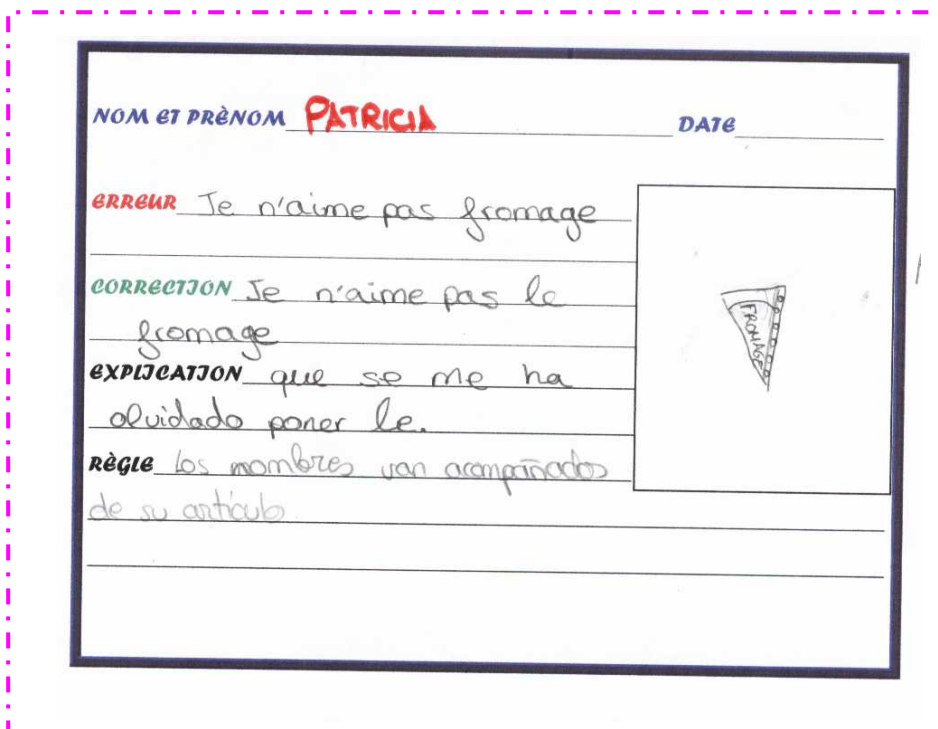 NOM ET PRÈNOM PATRICIA DATE
ERREUR Je n'aime pas fromage
CORRECTION Je n'aime pas le
fromage
FROMAGE
EXPLICATION que se me ha
olvidado poner le.
RÈGLE Los nombres van acompañados
de su artículo